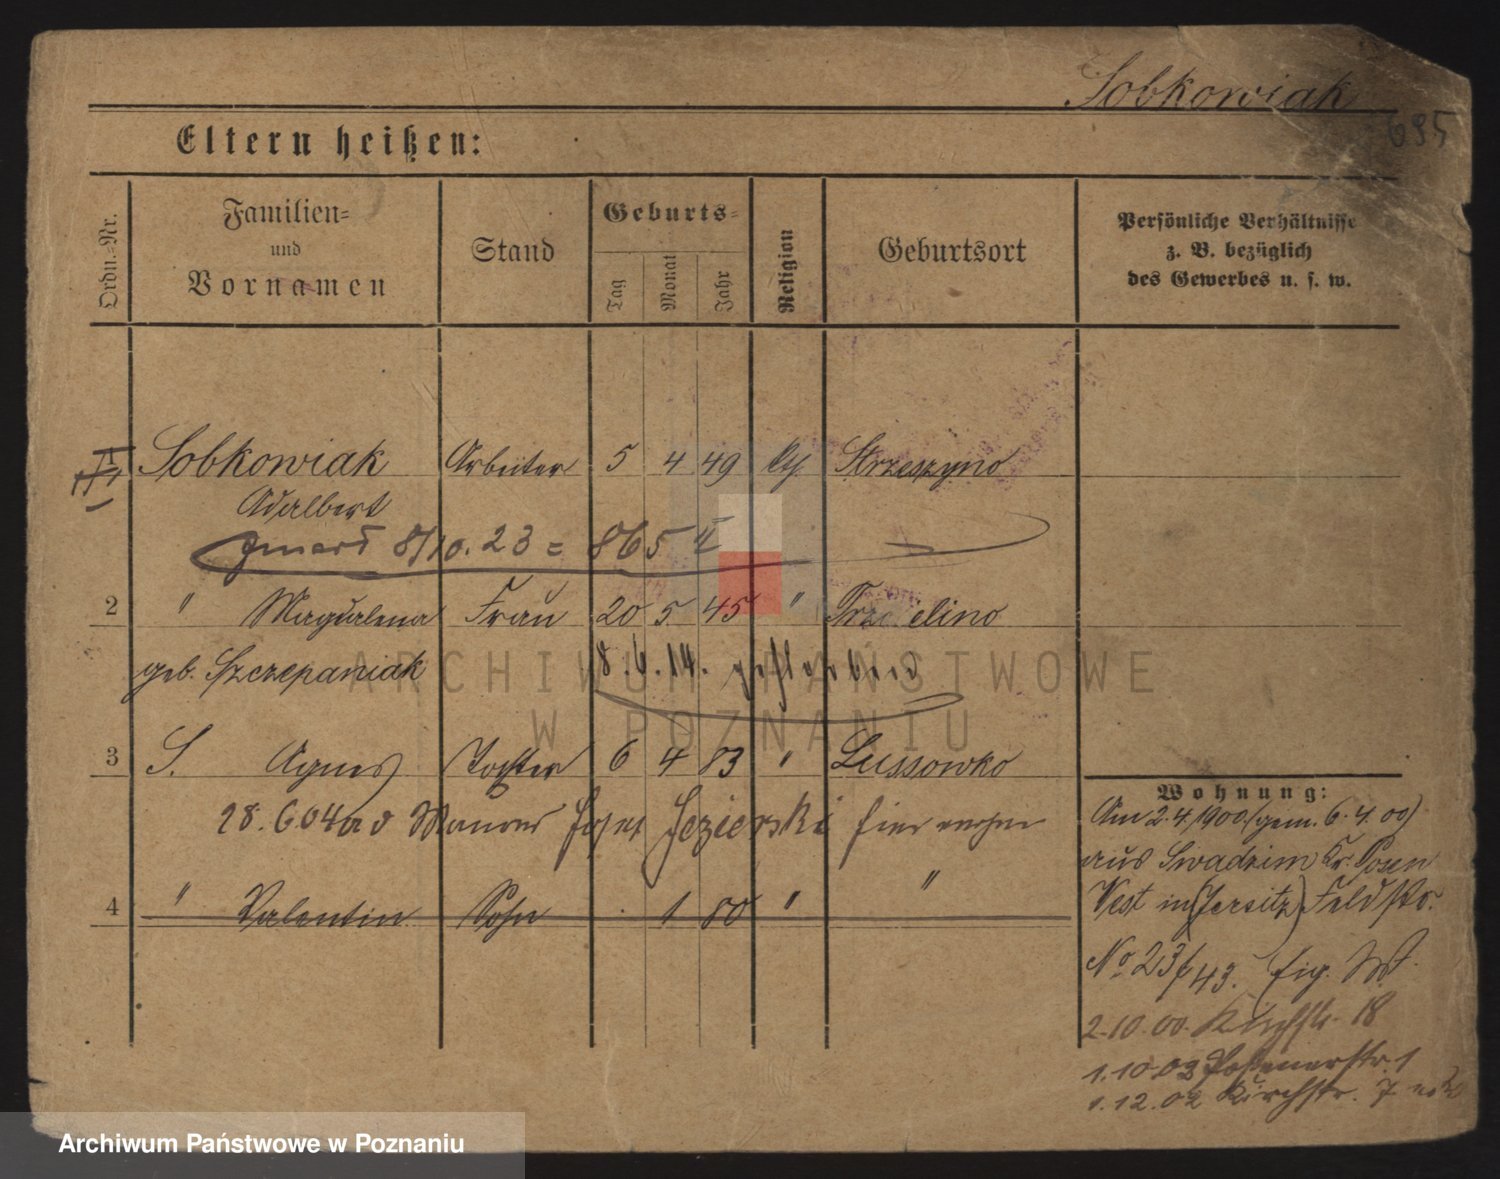 Sobkowiak
695
Eltern heißen:
Ordn.-Nr.
Familien-
und
Vornamen
Stand
Geburts-
Tag
Monat
Jahr
Religion
Geburtsort
Persönliche Verhältnisse
z. B. bezüglich
des Gewerbes u. s. w.
Sobkowiak Arbeiter 5 4 49 Strzeszyno
Adalbert
zmarł 8/10.23 = 865
2 " Magdalena Frau 20 5 45 "
geb. Szczepaniak 8.6.14. gestorben
3 S. Agnes Tochter 6 4 83 " Lussowko
28.6.04 Maurer Josef Jezierski
4 " Valentin Sohn 1 80 " "
Wohnung:
Am 2.4.1900 (gem. 6.4.00)
aus Swadzim Kr. Posen
West in (Jersitz) Feldstr.
No 23/43.
2.10.00. Kirchstr. 18
1.10.02 Posenerstr. 1
1.12.02 Kirchstr. 7
ARCHIWUM PAŃSTWOWE
W POZNANIU
Archiwum Państwowe w Poznaniu